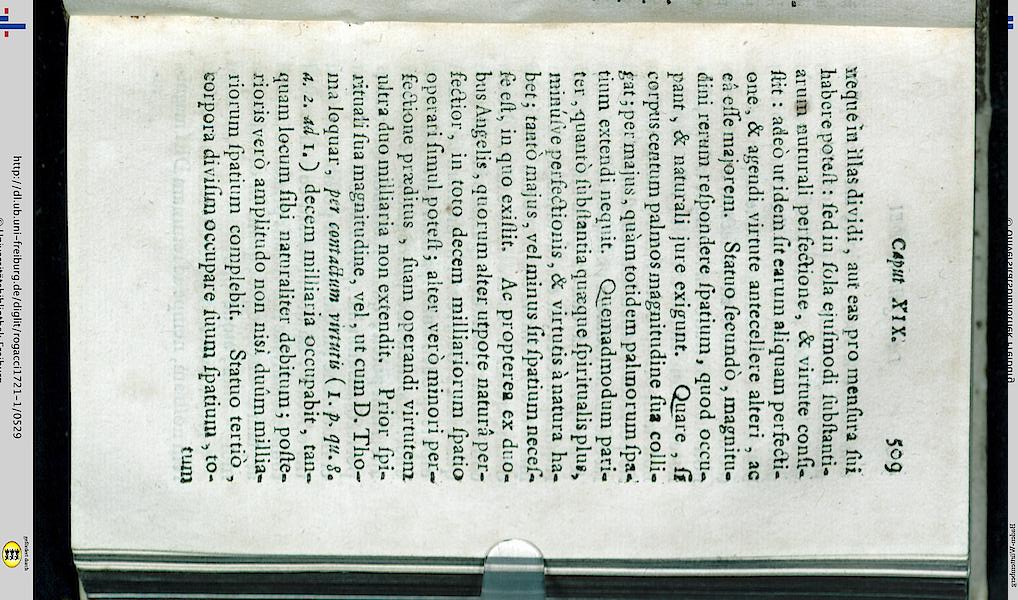 Caput XIX. 509
neque in illas dividi, aut eas pro mensura sui
habere potest: sed in sola ejusmodi substanti-
arum nuturali perfectione, & virtute consi-
stit: adeò ut idem sit earum aliquam perfecti-
one, & agendi virtute antecellere alteri, ac
eâ esse majorem. Statuo secundò, magnitu-
dini rerum respondere spatium, quod occu-
pant, & naturali jure exigunt. Quare, si
corpus centum palmos magnitudine sua colli-
gat; per majus, quàm totidem palmorum spa-
tium extendi nequit. Quemadmodum pari-
ter, quantò substantia quæque spiritualis plus,
minusve perfectionis, & virtutis à natura ha-
bet; tantò majus, vel minus sit spatium neces-
se est, in quo existit. Ac propterea ex duo-
bus Angelis, quorum alter utpote naturâ per-
fectior, in toto decem milliariorum spatio
operari simul potest; alter verò minori per-
fectione præditus, suam operandi virtutem
ultra duo milliaria non extendit. Prior spi-
rituali sua magnitudine, vel, ut cum D. Tho-
ma loquar, per contactum virtutis (1. p. qu. 8.
a. 2. ad 1.) decem milliaria occupabit, tan-
quam locum sibi naturaliter debitum; poste-
rioris verò amplitudo non nisi duûm millia-
riorum spatium complebit. Statuo tertiò,
corpora divisim occupare suum spatium, to-
tum
http://dl.ub.uni-freiburg.de/diglit/rogacci1721-1/0529
© Universitätsbibliothek Freiburg
gefördert durch